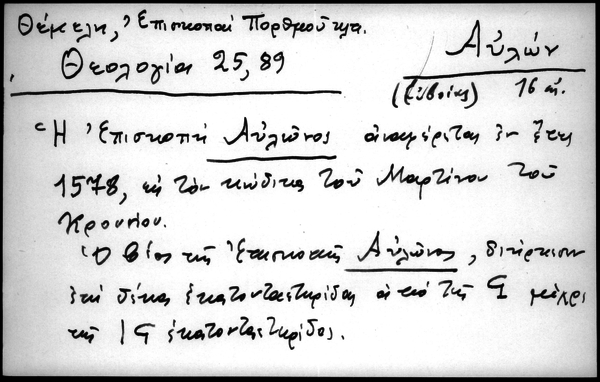 Θέμελη, Ἐπισκοπαί Πορθμοῦ κτλ.
Θεολογία 25, 89
Αὐλών
(Εὐβοίας) 16 αἰ.
Ἡ Ἐπισκοπή Αὐλῶνος ἀναφέρεται ἐν ἔτει
1578, εἰς τὸν κώδικα τοῦ Μαρτίνου τοῦ
Κρουσίου.
Ὁ βίος τῆς Ἐπισκοπῆς Αὐλῶνος, διήρκεσεν
ἐπί δέκα ἑκατονταετηρίδας ἀπό τῆς Ϛ μέχρι
τῆς ΙϚ ἑκατονταετηρίδος.